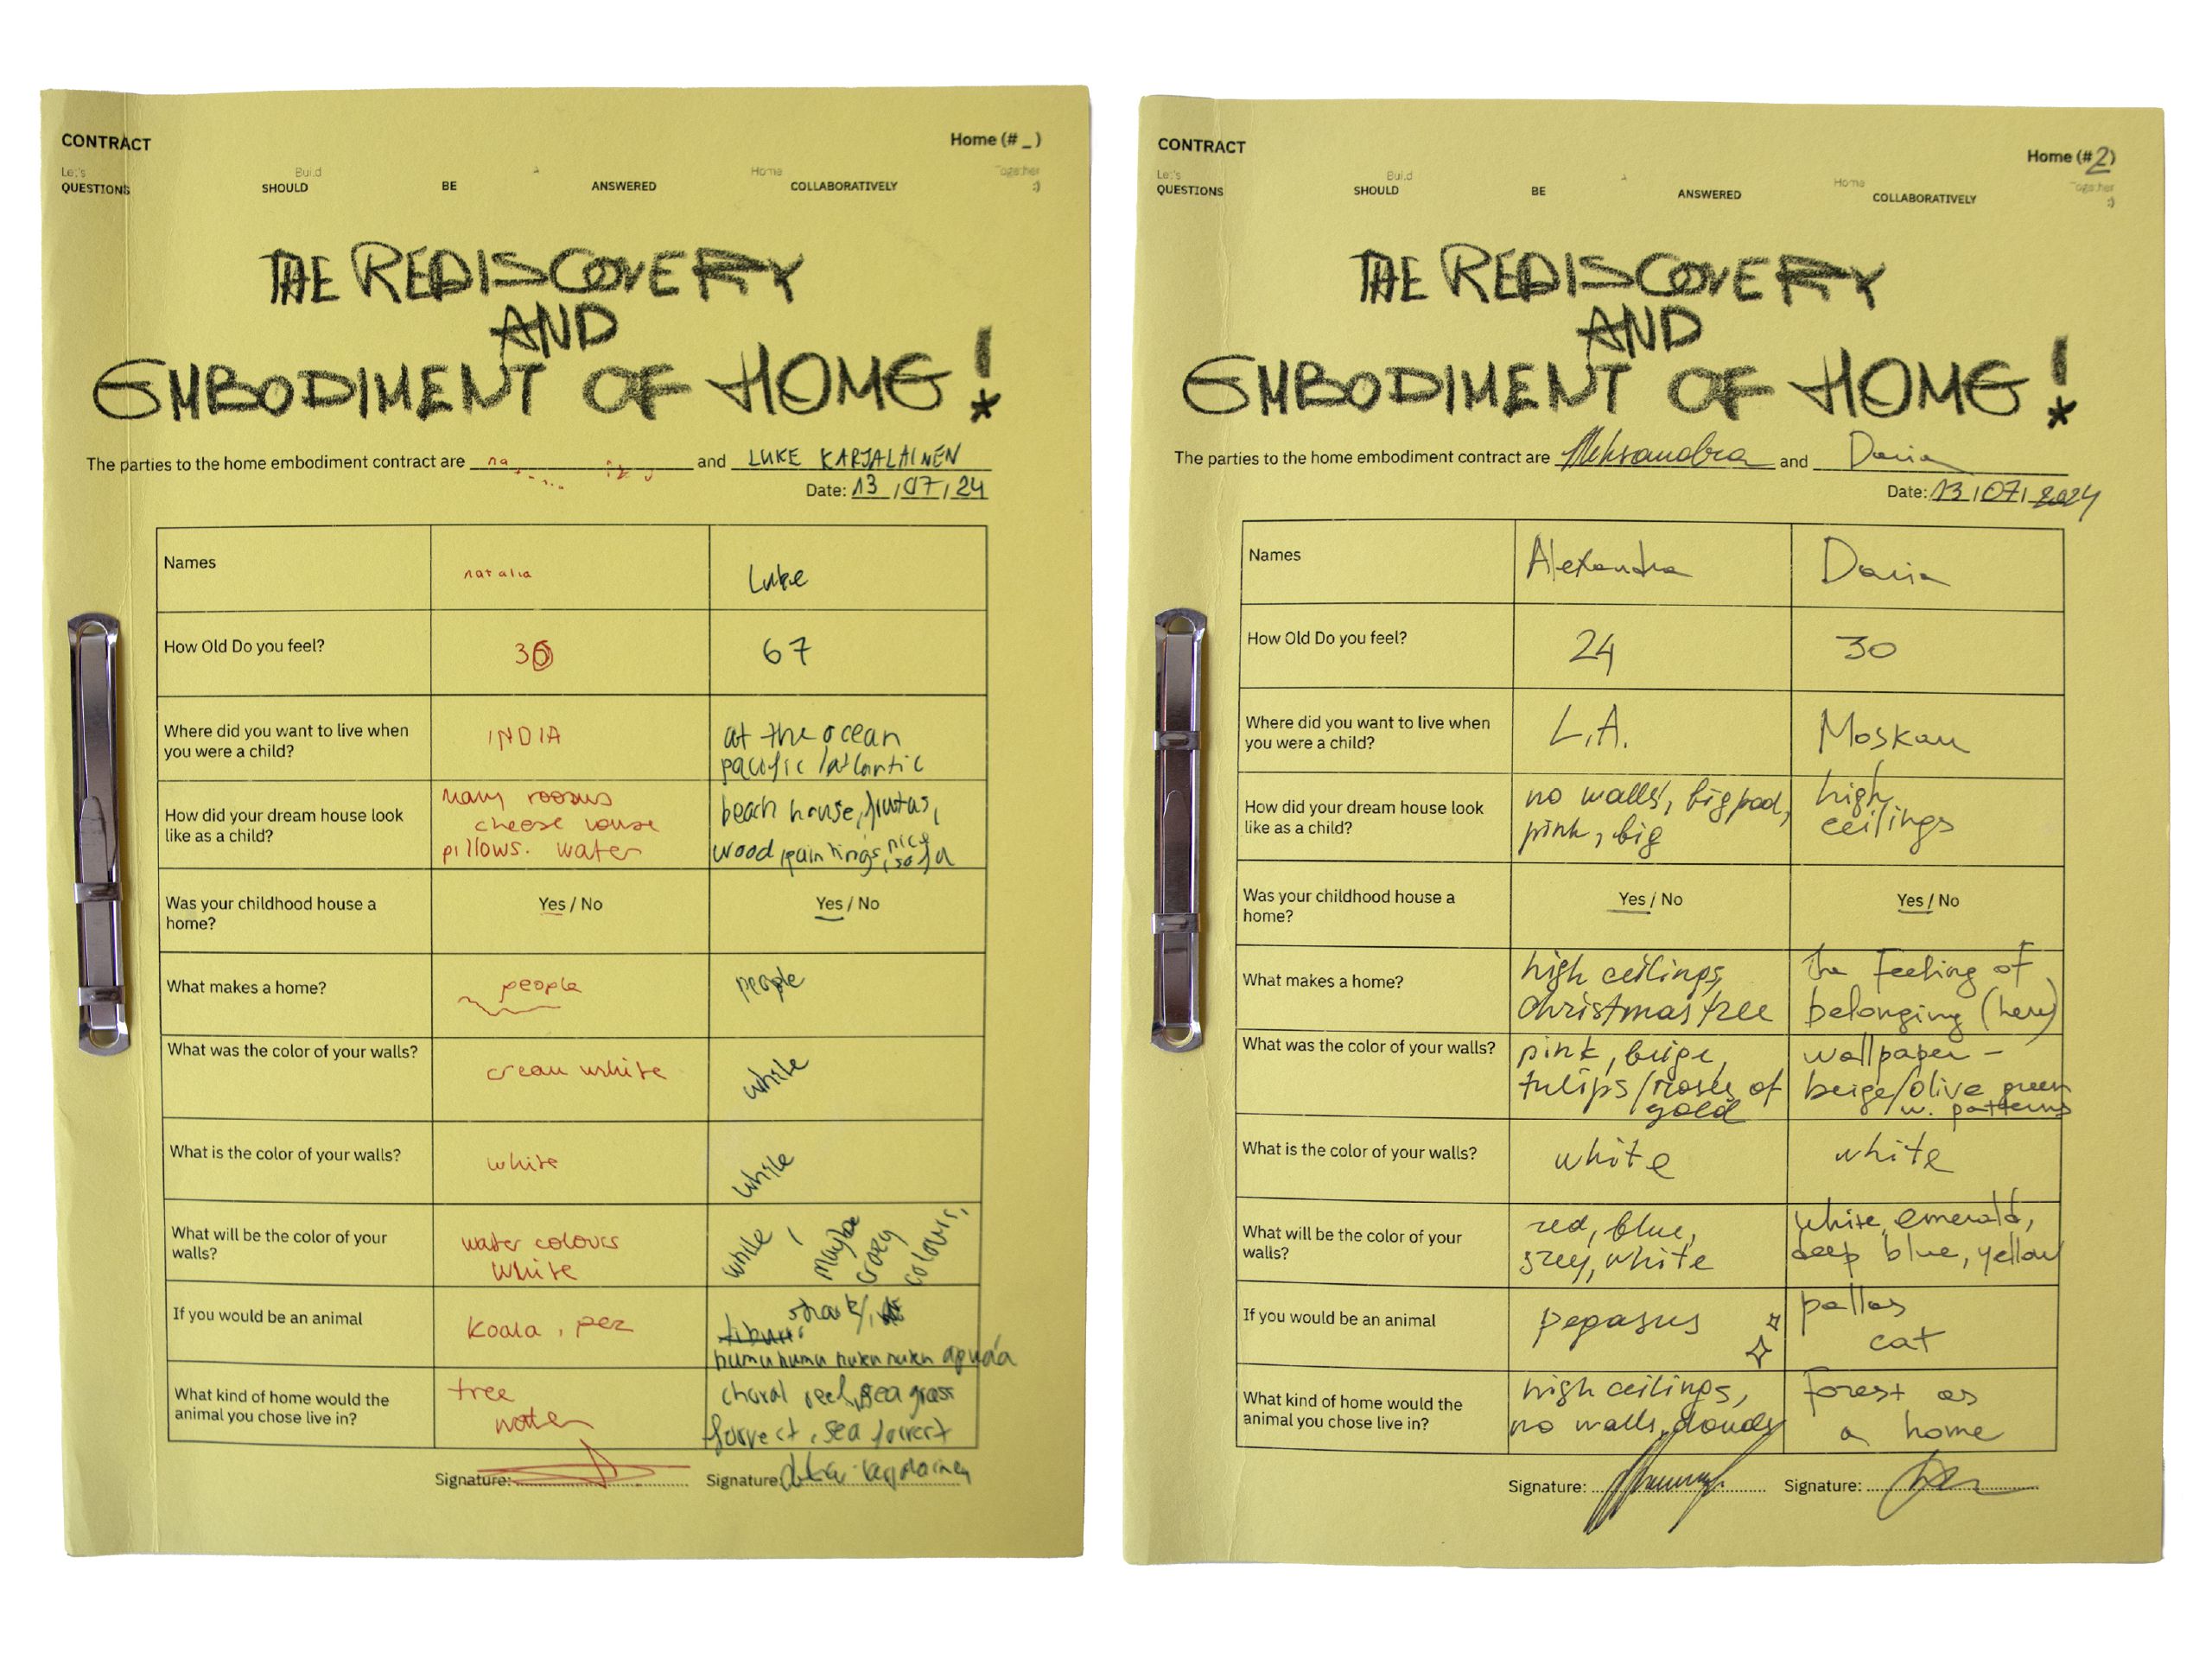 CONTRACT
Home (# _ )
Let's Build a Home Together
QUESTIONS SHOULD BE ANSWERED COLLABORATIVELY :)
THE REDISCOVERY
AND
EMBODIMENT OF HOME!*
The parties to the home embodiment contract are na and LUKE KARJALAINEN
Date: 13/07/24
Names natalia Luke
How Old Do you feel? 30 67
Where did you want to live when
you were a child?
INDIA
at the ocean
pacific/atlantic
How did your dream house look
like as a child?
many rooms
cheese
pillows. water
beach house, frutas,
wood, paintings, nice
sofa
Was your childhood house a
home?
Yes / No
Yes / No
What makes a home? people people
What was the color of your walls? cream white white
What is the color of your walls? white white
What will be the color of your
walls?
water colours
white
white / maybe
crazy
colours,
If you would be an animal
koala, pez
shark,
humuhumu nuku nuku
What kind of home would the
animal you chose live in?
tree
water
choral reef, sea grass
forrest, sea forrest
Signature:
Signature:
CONTRACT
Home (#2)
Let's Build a Home Together
QUESTIONS SHOULD BE ANSWERED COLLABORATIVELY :)
THE REDISCOVERY
AND
EMBODIMENT OF HOME!*
The parties to the home embodiment contract are Aleksandra and Daria
Date: 13/07/2024
Names Alexandra Daria
How Old Do you feel? 24 30
Where did you want to live when
you were a child?
L.A.
Moskau
How did your dream house look
like as a child?
no walls, big pad,
pink, big
high
ceilings
Was your childhood house a
home?
Yes / No
Yes / No
What makes a home?
high ceilings,
christmas tree
the feeling of
belonging (here)
What was the color of your walls?
pink, beige,
tulips/roses of
gold
wallpaper -
beige/olive green
w. patterns
What is the color of your walls? white white
What will be the color of your
walls?
red, blue,
grey, white
white, emerald,
deep blue, yellow
If you would be an animal
pegasus
pallas
cat
What kind of home would the
animal you chose live in?
high ceilings,
no walls, clouds
forest as
a home
Signature:
Signature: